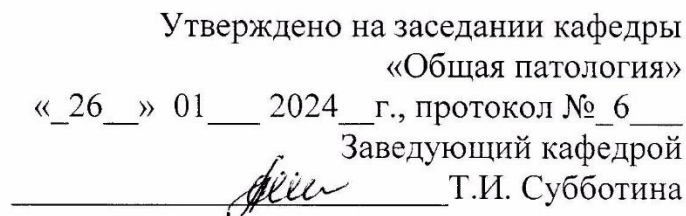 Утверждено на заседании кафедры
«Общая патология»
«_26__» 01___ 2024__г., протокол №_6___
Заведующий кафедрой
____________________Т.И. Субботина